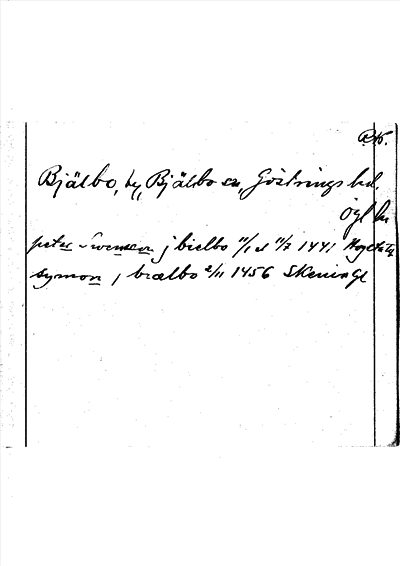 Bjälbo, by, Bjälbo sn, Göstrings hd.
Ögl ln
peter Swensson j bielbo 11/1 el 11/7 1441
symon j bælbo 2/11 1456 Skeninge